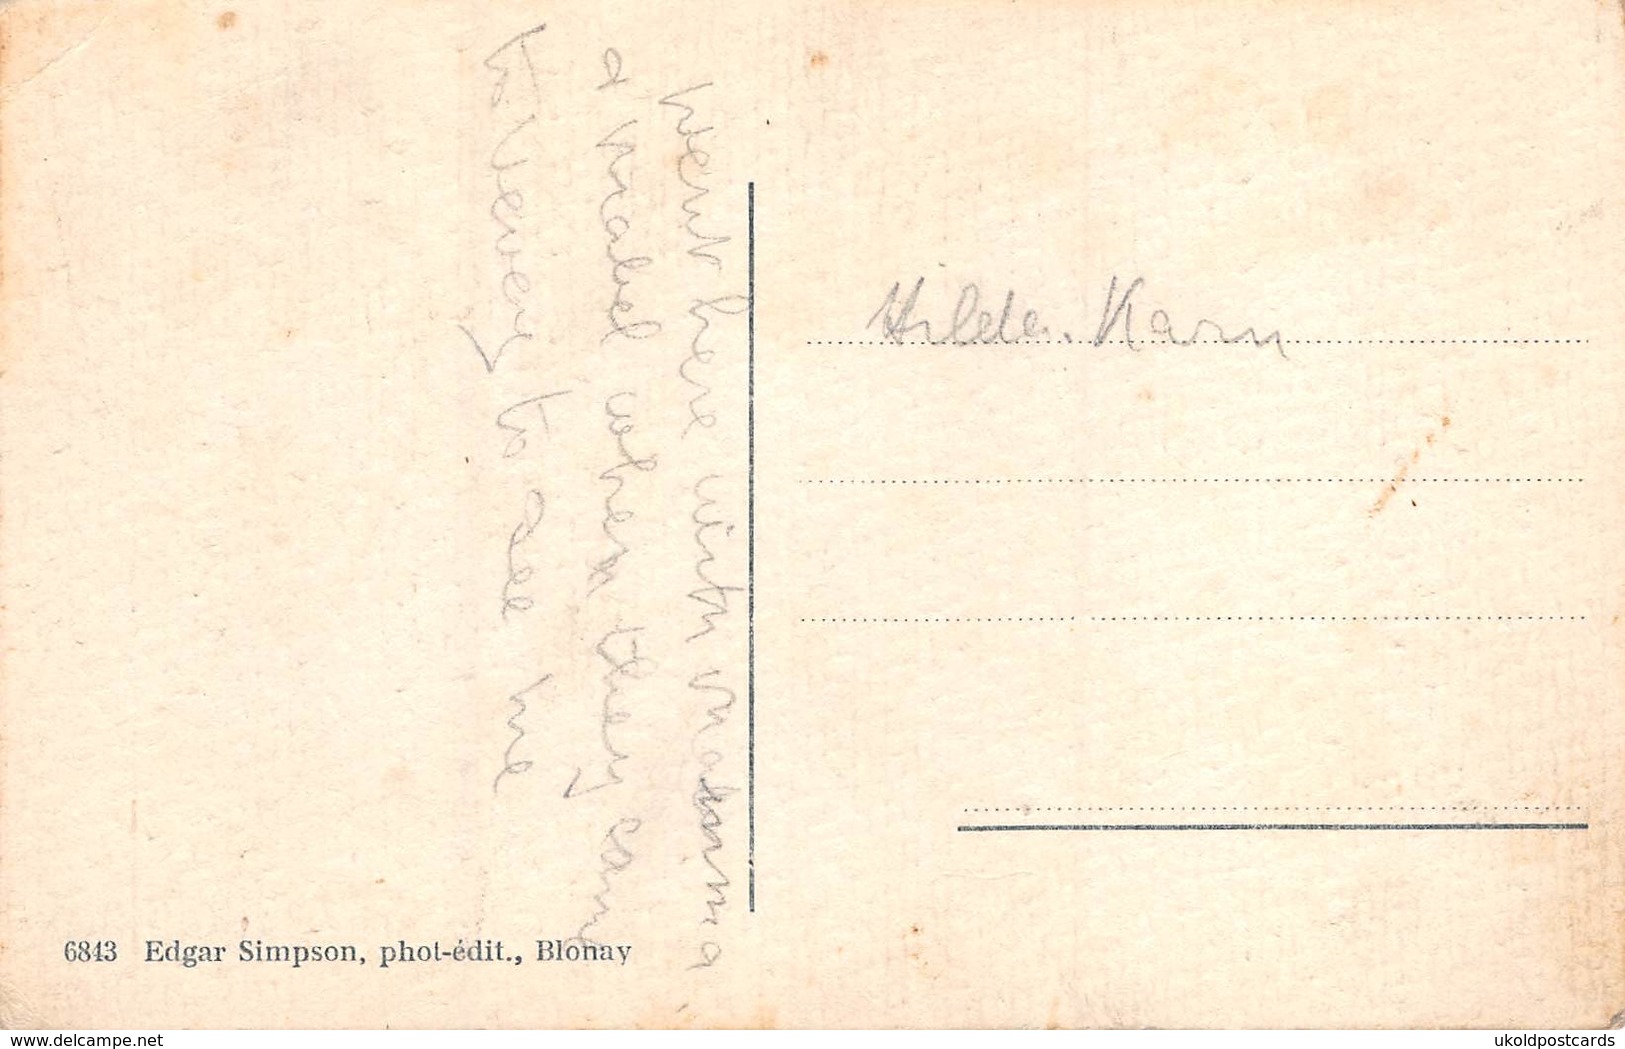 went here with mamma
& Mabel when they came
to Vevey to see me
Hilda. Karn
6843 Edgar Simpson, phot-édit., Blonay
www.delcampe.net
ukoldpostcards